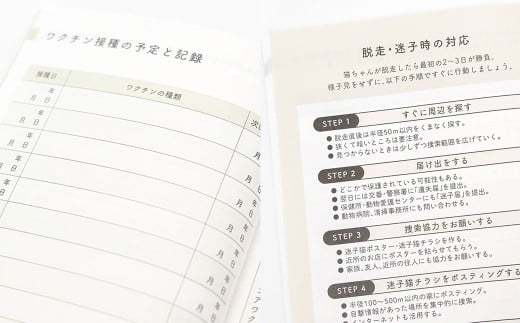 ワクチン接種の予定と記録
接種日
ワクチンの種類
次
年
月 日
年
月 日
年
月 日
年
月 日
年
月 日
年
月 日
年
月 日
月
月
月
月
月
脱走・迷子時の対応
猫ちゃんが脱走したら最初の2〜3日が勝負。
様子見をせずに、以下の手順ですぐに行動しましょう。
STEP 1 すぐに周辺を探す
● 脱走直後は半径50m以内をくまなく探す。
● 狭くて暗いところは要注意。
● 見つからないときは少しずつ捜索範囲を広げていく。
STEP 2 届け出をする
● どこかで保護されている可能性もある。
● 翌日には交番・警察署に「遺失届」を提出。
● 保健所・動物愛護センターにも「迷子届」を提出。
● 動物病院、清掃事務所にも問い合わせる。
STEP 3 捜索協力をお願いする
● 迷子猫ポスター・迷子猫チラシを作る。
● 近所のお店にポスターを貼らせてもらう。
● 家族、友人、近所の住人にも協力をお願いする。
STEP 4 迷子猫チラシをポスティングする
● 半径100〜500m以内の家にポスティング。
● 目撃情報があった場所を集中的に捜索。
● インターネットも活用する。